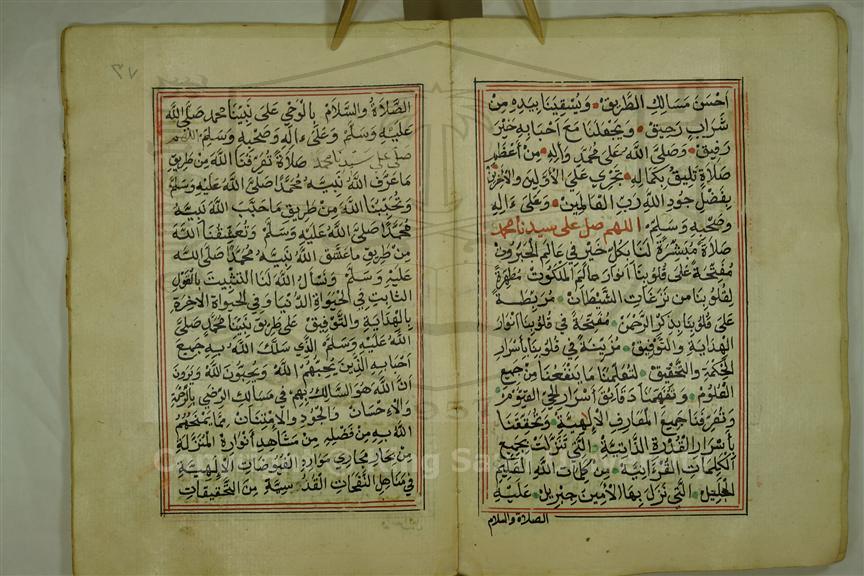 احسن مسالك الطريق ويسقينا بيده من
شراب رحيق ويجعلنا مع احبابه خير
رفيق وصلى الله على محمد واله من اعظم
صلاة تليق بكماله تجري على الاولين والاخرين
بفضل جود الله رب العالمين وعلى ءاله
وصحبه وسلم اللهم صل على سيدنا محمد
صلاة منتشرة لنا بكل خير في عالم الجبروت
مفتحة على قلوبنا انوار عالم الملكوت مطهرة
لقلوبنا من نزغات الشيطان مربطة
على قلوبنا بذكر الرحمن مفتحة في قلوبنا انوار
الهداية والتوفيق مزينة في قلوبنا باسرار
الحكمة والتحقيق لتعلمنا ما ينفعنا من جميع
العلوم وتفهمنا دقايق اسرار الحي القيوم
وتعرفنا جميع المعارف الالهية وتحققنا
باسرار القدرة الذاتية التي تنزلت بجميع
الكلمات القرءانية من كلمات الله العلية
التي نزل بها الامين جبريل عليه
الصلاة والسلام
٣٧
الصلاة والسلام بالوحي على نبينا محمد صلى الله
عليه وسلم وعلى ءاله وصحبه وسلم اللهم
صلى على سيدنا محمد صلاة تعرفنا الله من طريق
ما عرف الله نبيه محمدا صلى الله عليه وسلم
وتحببنا الله من طريق ما حبب الله نبيه
محمدا صلى الله عليه وسلم وتعشقنا الله
من طريق ما عشق الله نبيه محمدا صلى الله
عليه وسلم ونسأل الله لنا التثبيت بالقول
الثابت في الحيوة الدنيا وفي الحيوة الاخرة
بالهداية والتوفيق على طريق نبينا محمد صلى
الله عليه وسلم الذي سلك الله به جميع
احبابه الذين يحبهم الله ويحبون الله ويرون
ان الله هو السالك بهم في مسالك الرضى بالرحمة
والاحسان والجود والامتنان بما يمنحهم
الله به من فضله من مشاهد انواره المنزلة
من بحار مجاري موارد الفيوضات الالهية
في مناهل النفحات القدسية من التحقيقات